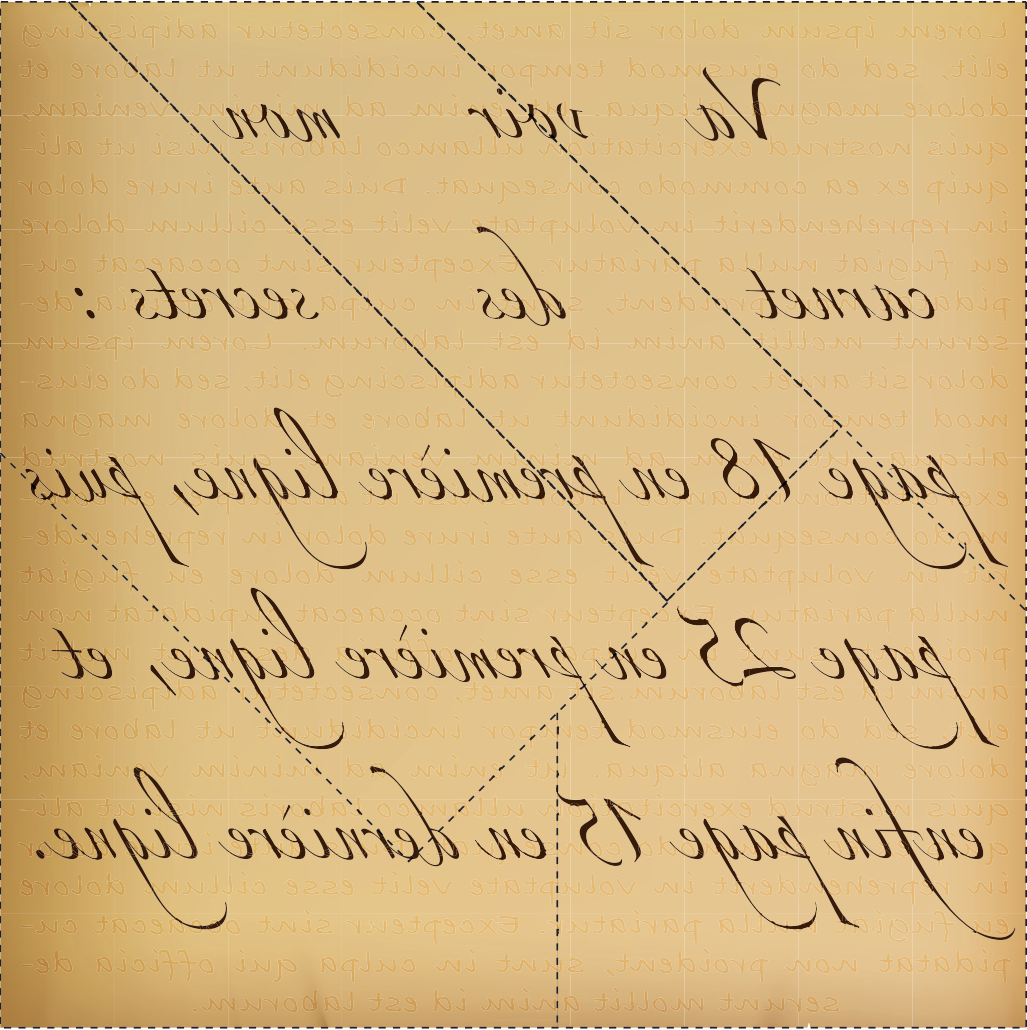 Lorem ipsum dolor sit amet, consectetur adipiscing
elit, sed do eiusmod tempor incididunt ut labore et
Va voir mon
dolore magna aliqua. Ut enim ad minim veniam,
quis nostrud exercitation ullamco laboris nisi ut ali-
quip ex ea commodo consequat. Duis aute irure dolor
in reprehenderit in voluptate velit esse cillum dolore
eu fugiat nulla pariatur. Excepteur sint occaecat cu-
carnet des secrets :
pidatat non proident, sunt in culpa qui officia de-
serunt mollit anim id est laborum. Lorem ipsum
dolor sit amet, consectetur adipiscing elit, sed do eius-
mod tempor incididunt ut labore et dolore magna
aliqua. Ut enim ad minim veniam, quis nostrud
page 18 en première ligne, puis
modo consequat. Duis aute irure dolor in reprehende-
rit in voluptate velit esse cillum dolore eu fugiat
nulla pariatur. Excepteur sint occaecat cupidatat non
page 25 en première ligne, et
anim id est laborum. Lorem ipsum dolor sit amet, consectetur adipiscing
elit, sed do eiusmod tempor incididunt ut labore et
dolore magna aliqua. Ut enim ad minim veniam,
quis nostrud exercitation ullamco laboris nisi ut ali-
enfin page 15 en dernière ligne.
in reprehenderit in voluptate velit esse cillum dolore
eu fugiat nulla pariatur. Excepteur sint occaecat cu-
pidatat non proident, sunt in culpa qui officia de-
serunt mollit anim id est laborum.